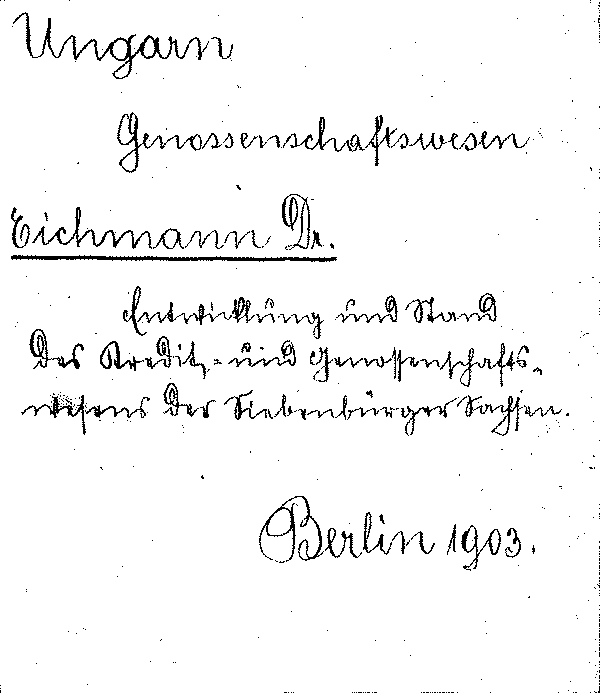 Ungarn
Genossenschaftswesen
Eichmann Dr.
Entwicklung und Stand
des Kredit- und Genossenschafts-
wesens der Siebenbürger Sachsen.
Berlin 1903.